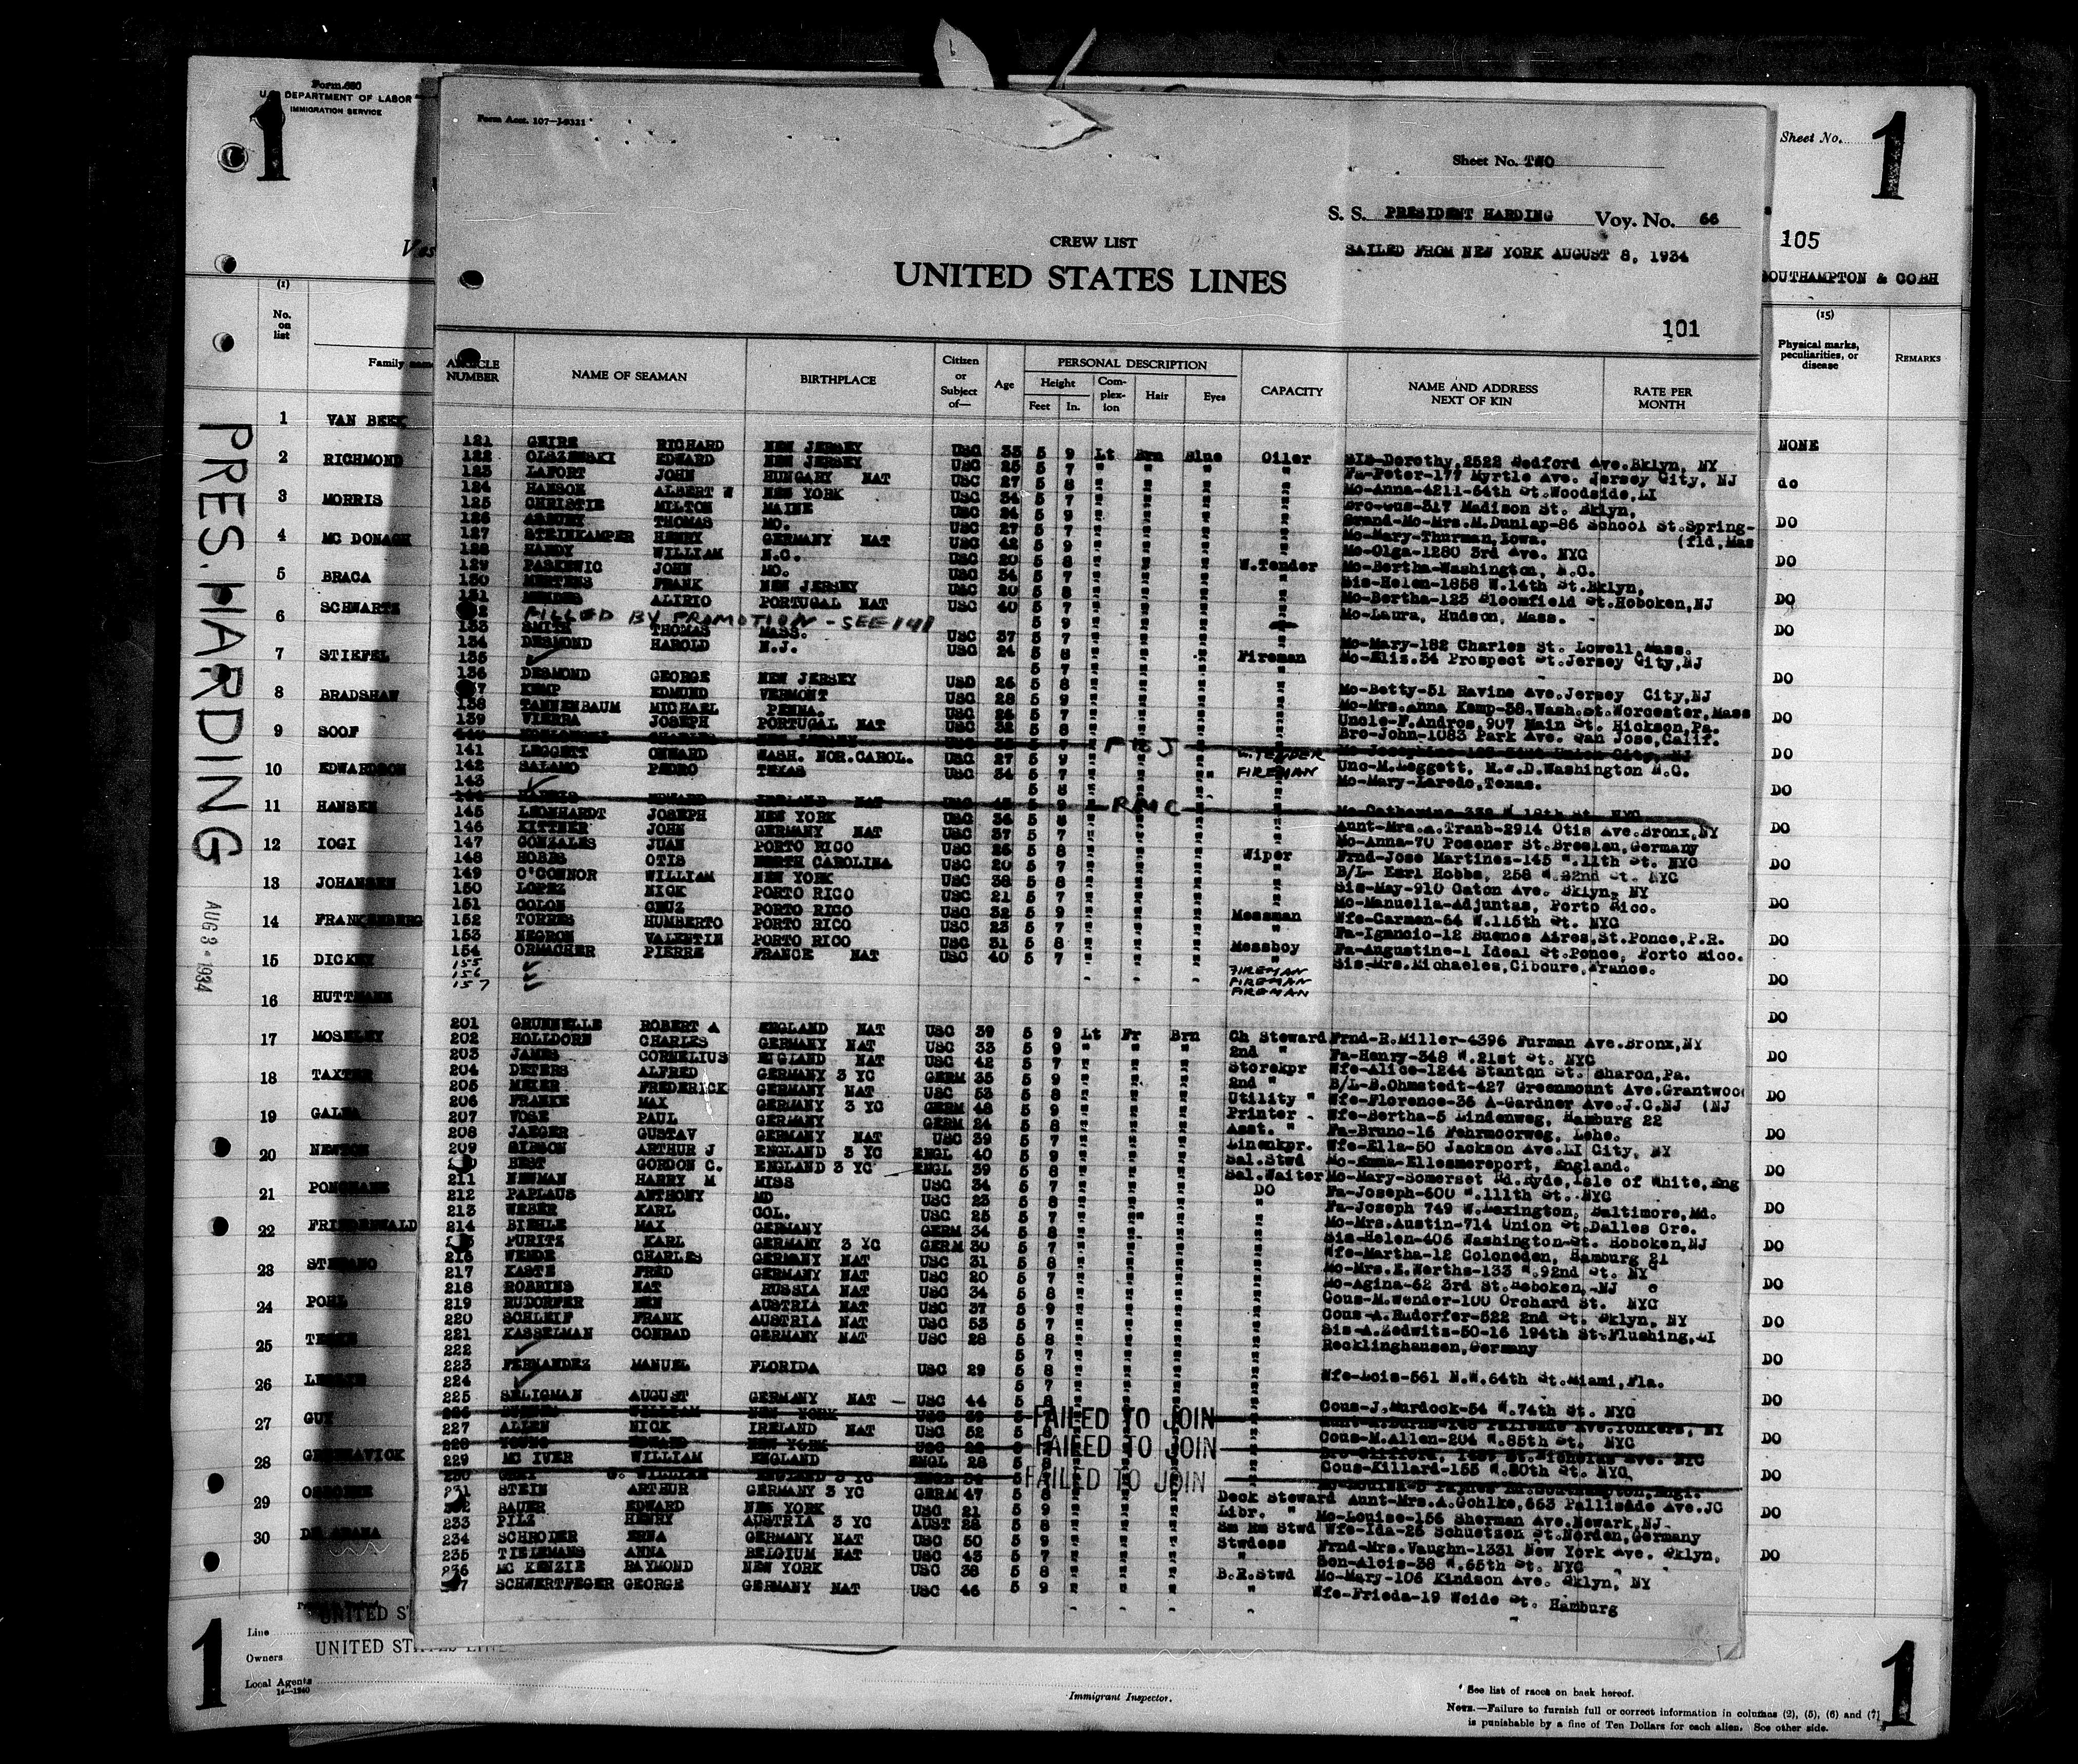 Form 680
U.S. DEPARTMENT OF LABOR
IMMIGRATION SERVICE
1
Form Acct. 107-J-9321
Sheet No. TWO
Sheet No.
1
S. S. PRESIDENT HARDING Voy. No. 66
CREW LIST
SAILED FROM NEW YORK AUGUST 8, 1934
105
UNITED STATES LINES
SOUTHAMPTON & COBH
101
(1) No. on list
Family name
ARTICLE NUMBER
NAME OF SEAMAN
BIRTHPLACE
Citizen or Subject of—
Age
PERSONAL DESCRIPTION
Height
Feet In.
Complexion
Hair
Eyes
CAPACITY
NAME AND ADDRESS NEXT OF KIN
RATE PER MONTH
(15) Physical marks, peculiarities, or disease
REMARKS
PRES. HARDING
1 VAN BEEK NONE
2 RICHMOND do
3 MORRIS DO
4 MC DONAGH DO
5 BRACA DO
6 SCHWARTZ DO
7 STIEFEL DO
8 BRADSHAW DO
9 SOOF DO
10 EDWARDSON DO
11 HANSEN DO
12 IOGI DO
13 JOHANSEN DO
14 FRANKENBERG DO
15 DICKEY DO
16 HUTTMANN DO
17 MOSELEY DO
18 TAXTER DO
19 GALEA DO
20 NEWTON DO
21 DO
22 FRIEDENWALD DO
23 DO
24 POHL DO
25 DO
26 LESLIE DO
27 GUY DO
28 DO
29 OSBORNE DO
30 DO
121 GEIRE RICHARD NEW JERSEY USC 35 5 9 Lt Brn Blue Oiler Sis-Dorothy,2522 Bedford Ave.Bklyn, NY
122 OLSZEWSKI EDWARD NEW JERSEY USC 25 5 7 Fa-Peter-177 Myrtle Ave. Jersey City, NJ
123 LAFORT JOHN HUNGARY NAT USC 27 5 8 Mo-Anna-4211-64th St.Woodside,LI
124 HANSON ALBERT W NEW YORK USC 34 5 7 Bro-Gus-317 Madison St. Bklyn,
125 CHRISTIE MILTON MAINE USC 24 5 9 Grand-Mo-Mrs.M.Dunlap-86 School St.Spring-(fld,Mas
126 ASBURY THOMAS MO. USC 27 5 7 Mo-Mary-Thurman,Iowa.
127 STEINKAMPER HENRY GERMANY NAT USC 42 5 9 Mo-Olga-1280 3rd Ave. NYC
128 HANDY WILLIAM N.C. USC 20 5 8 W.Tender Mo-Bertha-Washington, N.C.
129 PASKEWIC JOHN MO. USC 34 5 7 Sis-Helen-1858 W.14th St.Bklyn,
130 MERTENS FRANK NEW JERSEY USC 20 5 8 Mo-Bertha-123 Bloomfield St.Hoboken,NJ
131 ALIRIO PORTUGAL NAT USC 40 5 7 Mo-Laura, Hudson, Mass.
FILLED BY PROMOTION - SEE 141
133 SMITH THOMAS MASS. USC 37 Mo-Mary-182 Charles St. Lowell,Mass.
134 DESMOND HAROLD N.J. USC 24 5 8 Fireman Mo-Eliz.34 Prospect St.Jersey City,NJ
135
136 DESMOND GEORGE NEW JERSEY USC 26 5 8 Mo-Betty-51 Ravine Ave.Jersey City,NJ
137 KEMP EDMUND VERMONT USC 28 5 9 Mo-Mrs.Anna Kemp-38.Wash.St.Worcester,Mass
138 TANNENBAUM MICHAEL PENNA. USC 26 5 7 Uncle-F.Andros,907 Main St. Hickson,Pa.
139 VIERRA JOSEPH PORTUGAL NAT USC 32 5 8 Bro-John-1083 Park Ave. San Jose,Calif.
F T J
141 LEGGETT WASH. NOR.CAROL. USC 27 5 9 W.TENDER Unc-M.Leggett, R.W.D.Washington N.C.
142 SALAMO PEDRO TEXAS USC 34 5 7 FIREMAN Mo-Mary-Laredo,Texas.
143
RMC
145 LEONHARDT JOSEPH NEW YORK USC 36 5 8 Aunt-Mrs.A.Traub-2914 Otis Ave.Bronx,NY
146 KITTNER JOHN GERMANY NAT USC 37 5 7 Mo-Anna-70 Posener St.Breslen,Germany
147 GONZALES JUAN PORTO RICO USC 26 5 8 Wiper Frnd-Jose Martines-145 W.11th St. NYC
148 HOBBS OTIS NORTH CAROLINA USC 20 5 7 B/L- Earl Hobbs, 258 W.22nd St. NYC
149 O'CONNOR WILLIAM NEW YORK USC 38 5 8 Sis-May-910 Caton Ave. Bklyn, NY
150 LOPEZ NICK PORTO RICO USC 21 5 7 Mo-Manuella-Adjuntas, Porto Rico.
151 COLON CRUZ PORTO RICO USC 32 5 9 Messman Wfe-Carmen-64 W.115th St. NYC
152 TORRES HUMBERTO PORTO RICO USC 23 5 7 Fa-Ignancio-12 Buenos Aires,St.Ponce,P.R.
153 NEGRON VALENTIN PORTO RICO USC 31 5 8 Messboy Fa-Augustine-1 Ideal St.Ponce, Porto Rico.
154 ORMACHER PIERRE FRANCE NAT USC 40 5 7 Sis-Mrs.Michaeles,Ciboure,France.
155 FIREMAN
156 FIREMAN
157 FIREMAN
201 GRUNNELLE ROBERT A ENGLAND NAT USC 39 5 9 Lt Fr Brn Ch Steward Frnd-R.Miller-4396 Furman Ave.Bronx,NY
202 HOLLDORN CHARLES GERMANY NAT USC 33 5 9 2nd " Fa-Henry-348 W.21st St. NYC
203 JAMES CORNELIUS ENGLAND NAT USC 42 5 7 Storekpr Wfe-Alice-1244 Stanton St. Sharon,Pa.
204 DETERS ALFRED GERMANY 3 YC GERM 35 5 9 2nd " B/L-B.Ohmstedt-427 Greenmount Ave.Grantwood (NJ
205 MEIER FREDERICK GERMANY NAT USC 53 5 8 Utility " Wfe-Florence-36 A-Gardner Ave.J.C.NJ
206 FRANKE MAX GERMANY 3 YC GERM 48 5 9 Printer Wfe-Bertha-5 Lindenweg, Hamburg 22
207 VOSE PAUL GERMANY GERM 24 5 8 Asst. " Fa-Bruno-16 Fehrmoorweg, Lehe.
208 JAEGER GUSTAV GERMANY NAT USC 39 5 7 Linenkpr. Wfe-Ella-50 Jackson Ave.LI City, NY
209 GIBSON ARTHUR J ENGLAND 3 YC ENGL 40 5 9 Sal.Stwd Mo-Emma-Ellesmereport, England.
BEST GORDON C. ENGLAND 3 YC ENGL 39 5 8 Sal.Waiter Mo-Mary-Somerset Rd.Ryde,Isle of White,Eng
211 NEWMAN HARRY M MISS USC 34 5 7 DO Fa-Joseph-600 W.111th St. NYC
212 PAPLAUS ANTHONY MD USC 23 5 8 Fa-Joseph 749 W.Lexington, Baltimore,Md.
213 WEBER KARL COL. USC 25 5 7 Mo-Mrs.Austin-714 Union St.Dalles Ore.
214 BIEHLE MAX GERMANY GERM 34 5 8 Sis-Helen-406 Washington-St. Hoboken,NJ
PURITZ KARL GERMANY 3 YC GERM 30 5 7 Wfe-Martha-12 Coloneden, Hamburg 21
216 WENDE CHARLES GERMANY NAT USC 31 5 8 Mo-Mrs.E.Werths-133 W.92nd St. NY
217 KASTE FRED GERMANY NAT USC 20 5 7 Mo-Agina-62 3rd St.Hoboken,-NJ
218 ROBBINS NAT RUSSIA NAT USC 34 5 8 Cous-M.Wender-100 Orchard St. NYC
219 RUDORFER BEN AUSTRIA NAT USC 37 5 9 Cous-A.Rudorfer-522 2nd St. Bklyn, NY
220 SCHLEIF FRANK AUSTRIA NAT USC 53 5 7 Sis-A.Zedwitz-50-16 194th St.Flushing,LI
221 KASSELMAN CONRAD GERMANY NAT USC 28 5 8 Recklinghausen,Germany
222 5 7
223 FERNANDEZ MANUEL FLORIDA USC 29 5 8 Wfe-Lois-561 N.W.64th St.Miami,Fla.
224 5 7
225 SELIGMAN AUGUST GERMANY NAT USC 44 5 8 Cous-J.Murdock-54 W.74th St. NYC
FAILED TO JOIN
227 ALLEN NICK IRELAND NAT USC 52 Cous-M.Allen-204 W.85th St. NYC
FAILED TO JOIN
229 MC IVER WILLIAM ENGLAND ENGL 28 Cous-Killard-155 W.80th St. NYC,
FAILED TO JOIN
231 STEIN ARTHUR GERMANY 3 YC GERM 47 5 8 Deck Steward Aunt-Mrs.A.Gohlke,663 Pallisade Ave.JC
232 BAUER EDWARD NEW YORK USC 21 5 9 Libr. " Mo-Louise-156 Sherman Ave.Newark,NJ
233 PILZ HENRY AUSTRIA 3 YC AUST 28 5 8 Sm Rm Stwd Wfe-Ida-26 Schuetzen St.Norden,Germany
234 SCHRODER ERNA GERMANY NAT USC 50 5 9 Stwdess Frnd-Mrs.Vaughn-1331 New York Ave. Bklyn,
235 TIELEMANS ANNA BELGIUM NAT USC 43 5 7 " Son-Alois-38 W.65th St. NYC
236 MC KENZIE RAYMOND NEW YORK USC 38 5 8 B.R.Stwd Mo-Mary-106 Kindson Ave. Bklyn, NY
237 SCHWERTFEGER GEORGE GERMANY NAT USC 46 5 9 " Wfe-Frieda-19 Weide St. Hamburg
1
Line
UNITED S
Owners
UNITED STATES LINES
Local Agents
14-1240
Immigrant Inspector.
* See list of races on back hereof.
NOTE.—Failure to furnish full or correct information in columns (2), (5), (6) and (7)
is punishable by a fine of Ten Dollars for each alien. See other side.
1